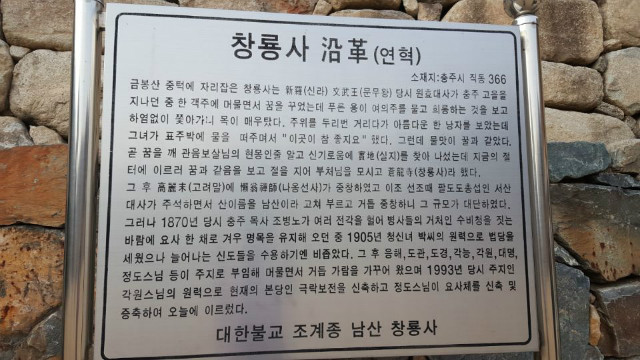 창룡사 沿革(연혁)
소재지:충주시 직동 366
금봉산 중턱에 자리잡은 창룡사는 新羅(신라) 文武王(문무왕) 당시 원효대사가 충주 고을을
지나던 중 한 객주에 머물면서 꿈을 꾸었는데 푸른 용이 여의주를 물고 희롱하는 것을 보고
하염없이 쫓아가니 목이 매우탔다. 주위를 두리번 거리다가 아름다운 한 낭자를 보았는데
그녀가 표주박에 물을 떠주며서 "이곳이 참 좋지요" 했다. 그런데 물맛이 꿀과 같았다.
곧 꿈을 깨 관음보살님의 현몽인줄 알고 신기로움에 實地(실지)를 찾아 나섰는데 지금의 절
터에 이르러 꿈과 같음을 보고 절을 지어 부처님을 모시고 蒼龍寺(창룡사)라 했다.
그 후 高麗末(고려말)에 懶翁禪師(나옹선사)가 중창하였고 이조 선조때 팔도도총섭인 서산
대사가 주석하면서 산이름을 남산이라 고쳐 부르고 거듭 중창하니 그 규모가 대단하였다.
그러나 1870년 당시 충주 목사 조병노가 여러 전각을 헐어 병사들의 거처인 수비청을 짓는
바람에 요사 한 채로 겨우 명목을 유지해 오던 중 1905년 청신녀 박씨의 원력으로 법당을
세웠으나 늘어나는 신도들을 수용하기엔 비좁았다. 그 후 응해,도관,도경,각능,각원,대명,
정도스님 등이 주지로 부임해 머물면서 거듭 가람을 가꾸어 왔으며 1993년 당시 주지인
각원스님의 원력으로 현재의 본당인 극락보전을 신축하고 정도스님이 요사체를 신축 및
증축하여 오늘에 이르렀다.
대한불교 조계종 남산 창룡사